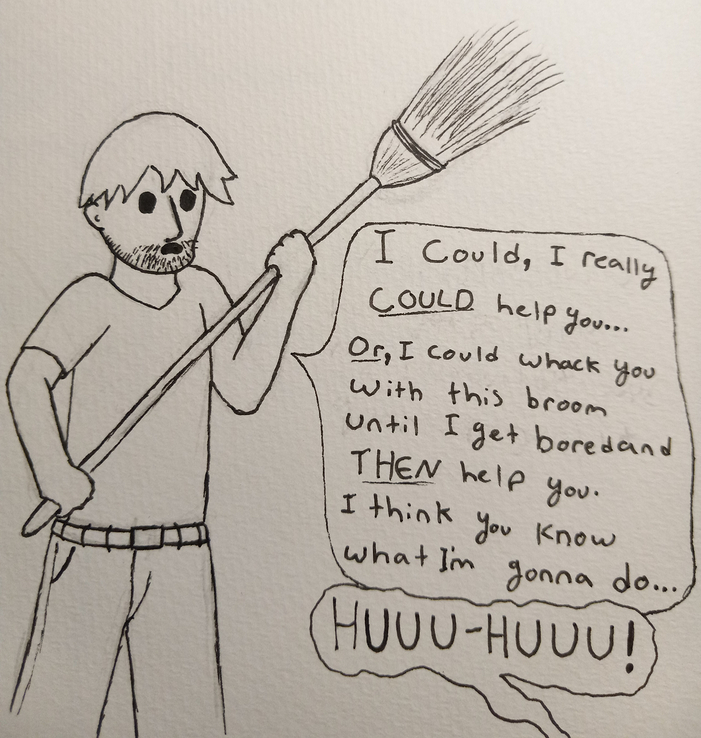 I Could, I really
COULD help you...
Or, I could whack you
with this broom
until I get boredand
THEN help you.
I think you know
what I'm gonna do...
HUUU-HUUU!